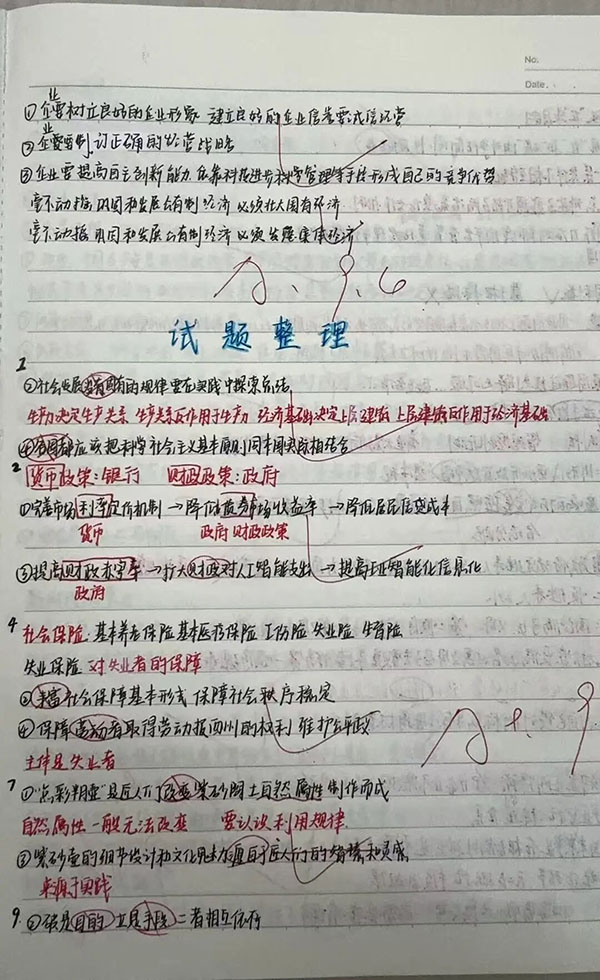 No.
Date.
业
①企要树立良好的企业形象 建立良好的企业信誉要诚信经营
业
②企要要制订正确的经营战略
③企业要提高自主创新能力 依靠科技进步科学管理等手段形成自己的竞争优势
毫不动摇巩固和发展公有制经济 必须壮大国有经济
毫不动摇巩固和发展公有制经济 必须发展集体经济
A. 9.6
试题整理
1
②社会发展有固有的规律 要在实践中探索总结
生产力决定生产关系 生产关系反作用于生产力 经济基础决定上层建筑 上层建筑反作用于经济基础
④各国都应该把科学社会主义基本原则同本国实际相结合
2 货币政策:银行 财政政策:政府
①完善市场利率定价机制→降低债券市场收益率→降低居民信贷成本
货币 政府 财政政策
③提高财政赤字率→扩大财政对人工智能支出→提高 智能化信息化
政府
4 社会保险:基本养老保险 基本医疗保险 工伤险 失业险 生育险
失业保险 对失业者的保障
②丰富社会保障基本形式 保障社会秩序稳定
④保障劳动者取得劳动报酬的权利 维护公平
主体是失业者
7 ①“点彩 壶”是匠人们改变紫砂陶土自然属性制作而成
自然属性一般无法改变 要认识利用规律
③紫砂壶的细节设计和文化魅力源自于匠人们的 和灵感
来源于实践
A+. 9
9. ②破是目的 立是手段 二者相互依存